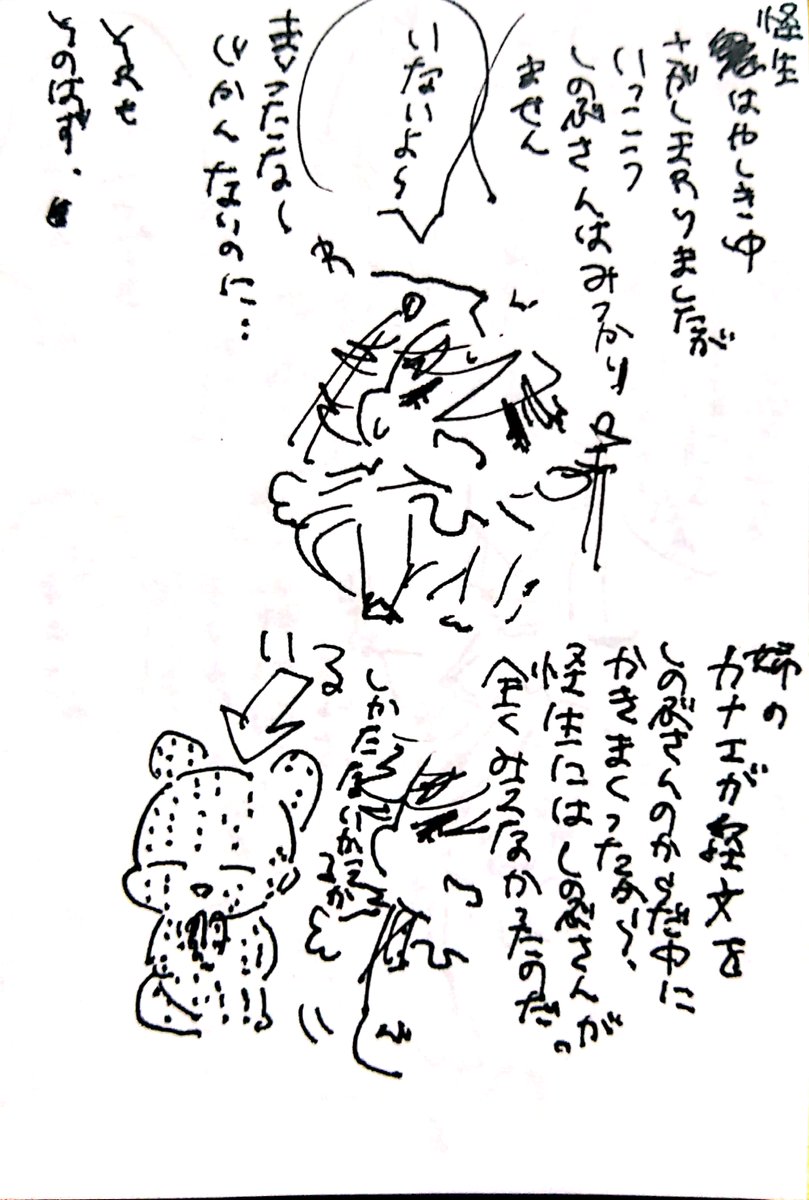 怪生
はやしき中
さがしまわりましたが
いっこうに
しのぶさんはみつかり
ません
いないよ〜
まいったな〜
じかんないのに…
それも
そのはず。
姉の
カナエが経文を
しのぶさんのからだ中に
かきまくったから、
怪生にはしのぶさんが
全くみえなかったのだ。
しかたないかえ
るか
いる